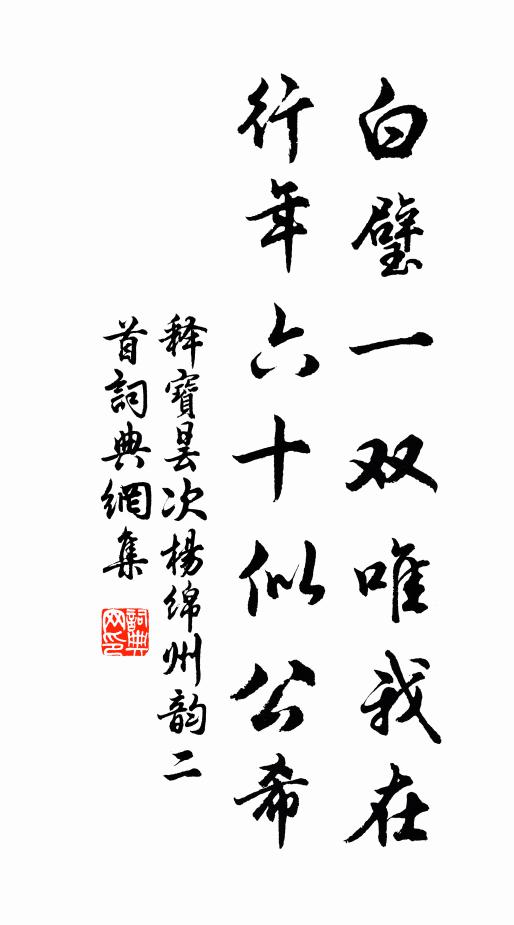 白璧一双唯我在
行年六十似公希
释寶昙次楊绵州韵二
首詞典網集
詞典